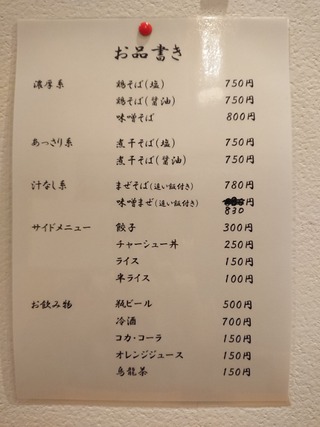 お品書き
濃厚系 鶏そば(塩) 750円
鶏そば(醤油) 750円
味噌そば 800円
あっさり系 煮干そば(塩) 750円
煮干そば(醤油) 750円
汁なし系 まぜそば(追い飯付き) 780円
味噌まぜ(追い飯付き) 円
830
サイドメニュー 餃子 300円
チャーシュー丼 250円
ライス 150円
半ライス 100円
お飲み物 瓶ビール 500円
冷酒 700円
コカ・コーラ 150円
オレンジジュース 150円
烏龍茶 150円